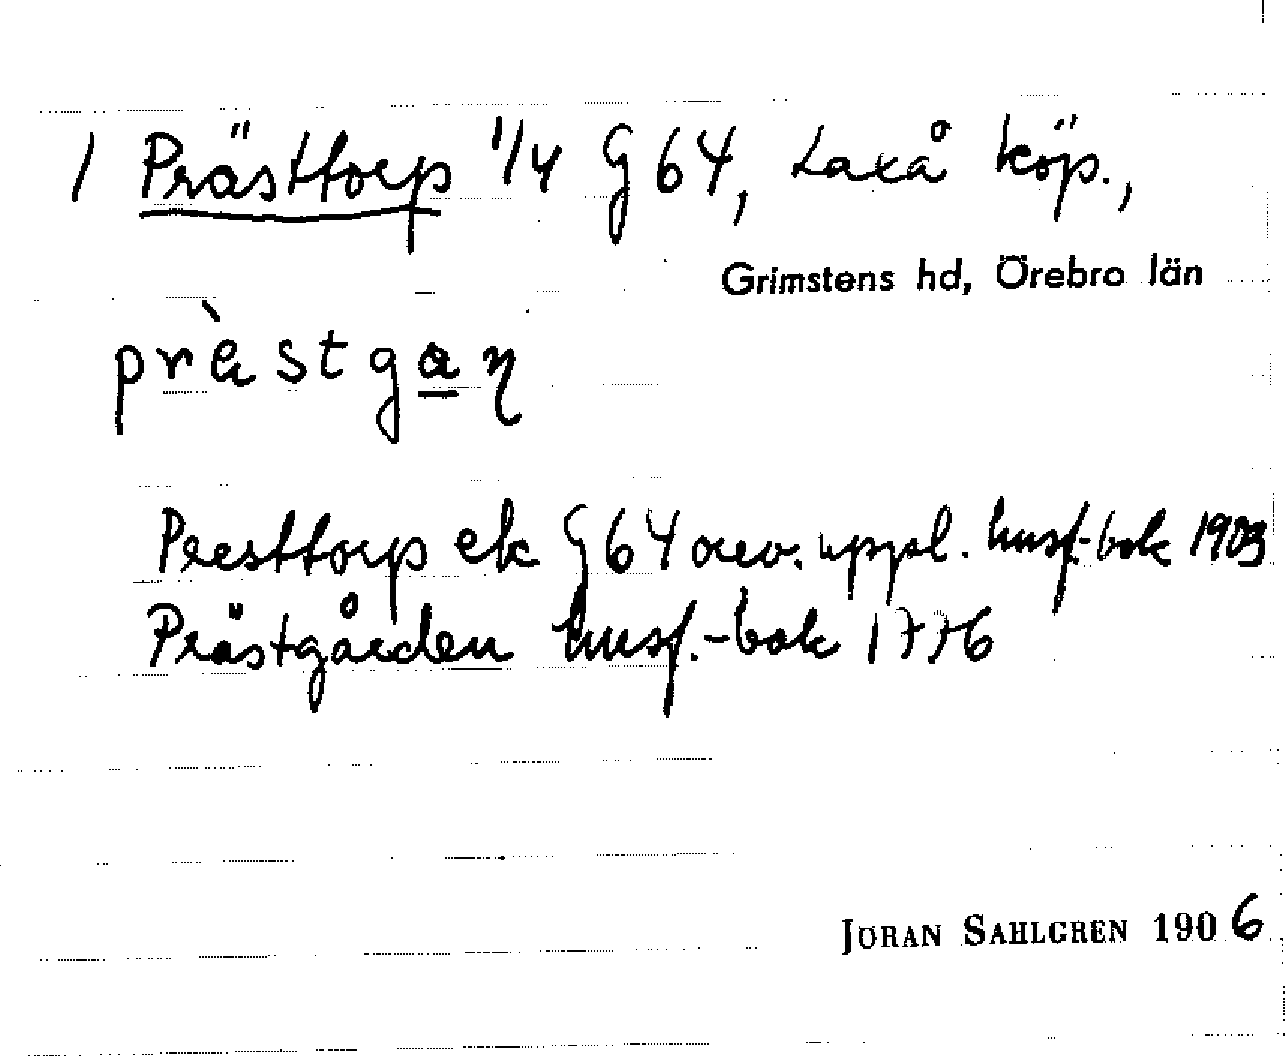 1 Prästtorp 1/4 G 64, Laxå köp.,
Grimstens hd, Örebro län
prästgaŋ
Presttorp ek G 64 orev. uppl. husf.-bok 1903
Prästgården husf.-bok 1776
JORAN SAHLGREN 1906